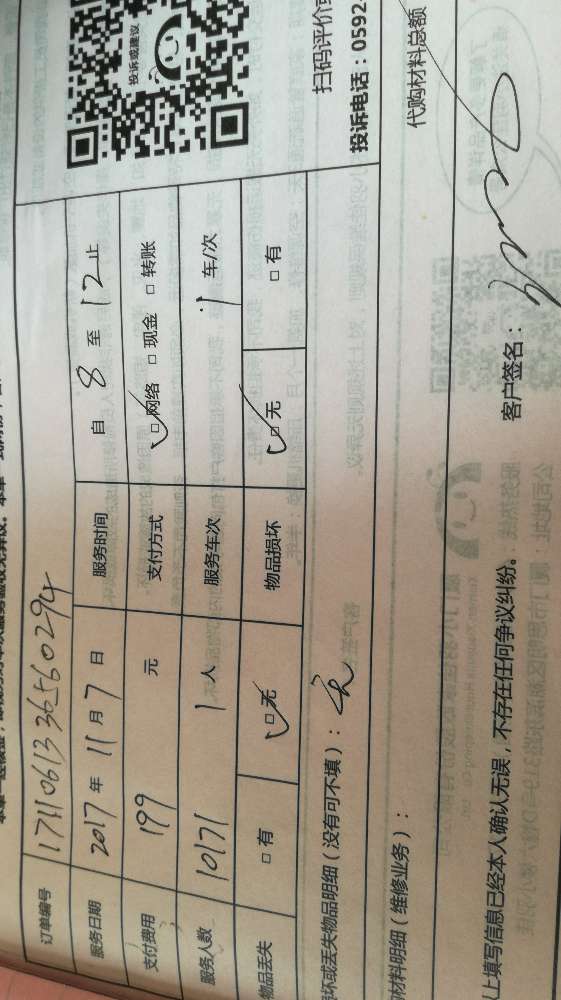 投诉或建议
扫码评价或
投诉电话：0592-
订单编号 1711061336560294
服务日期 2017年11月7日 服务时间 自8至12止
支付费用 199元 支付方式 网络 □现金 □转账
服务人数 10171 1人 服务车次 1车/次
物品丢失 □有 □无 物品损坏 □无 □有
损坏或丢失物品明细（没有可不填）：无
代购材料总额
材料明细（维修业务）：
上填写信息已经本人确认无误，不存在任何争议纠纷。 客户签名：